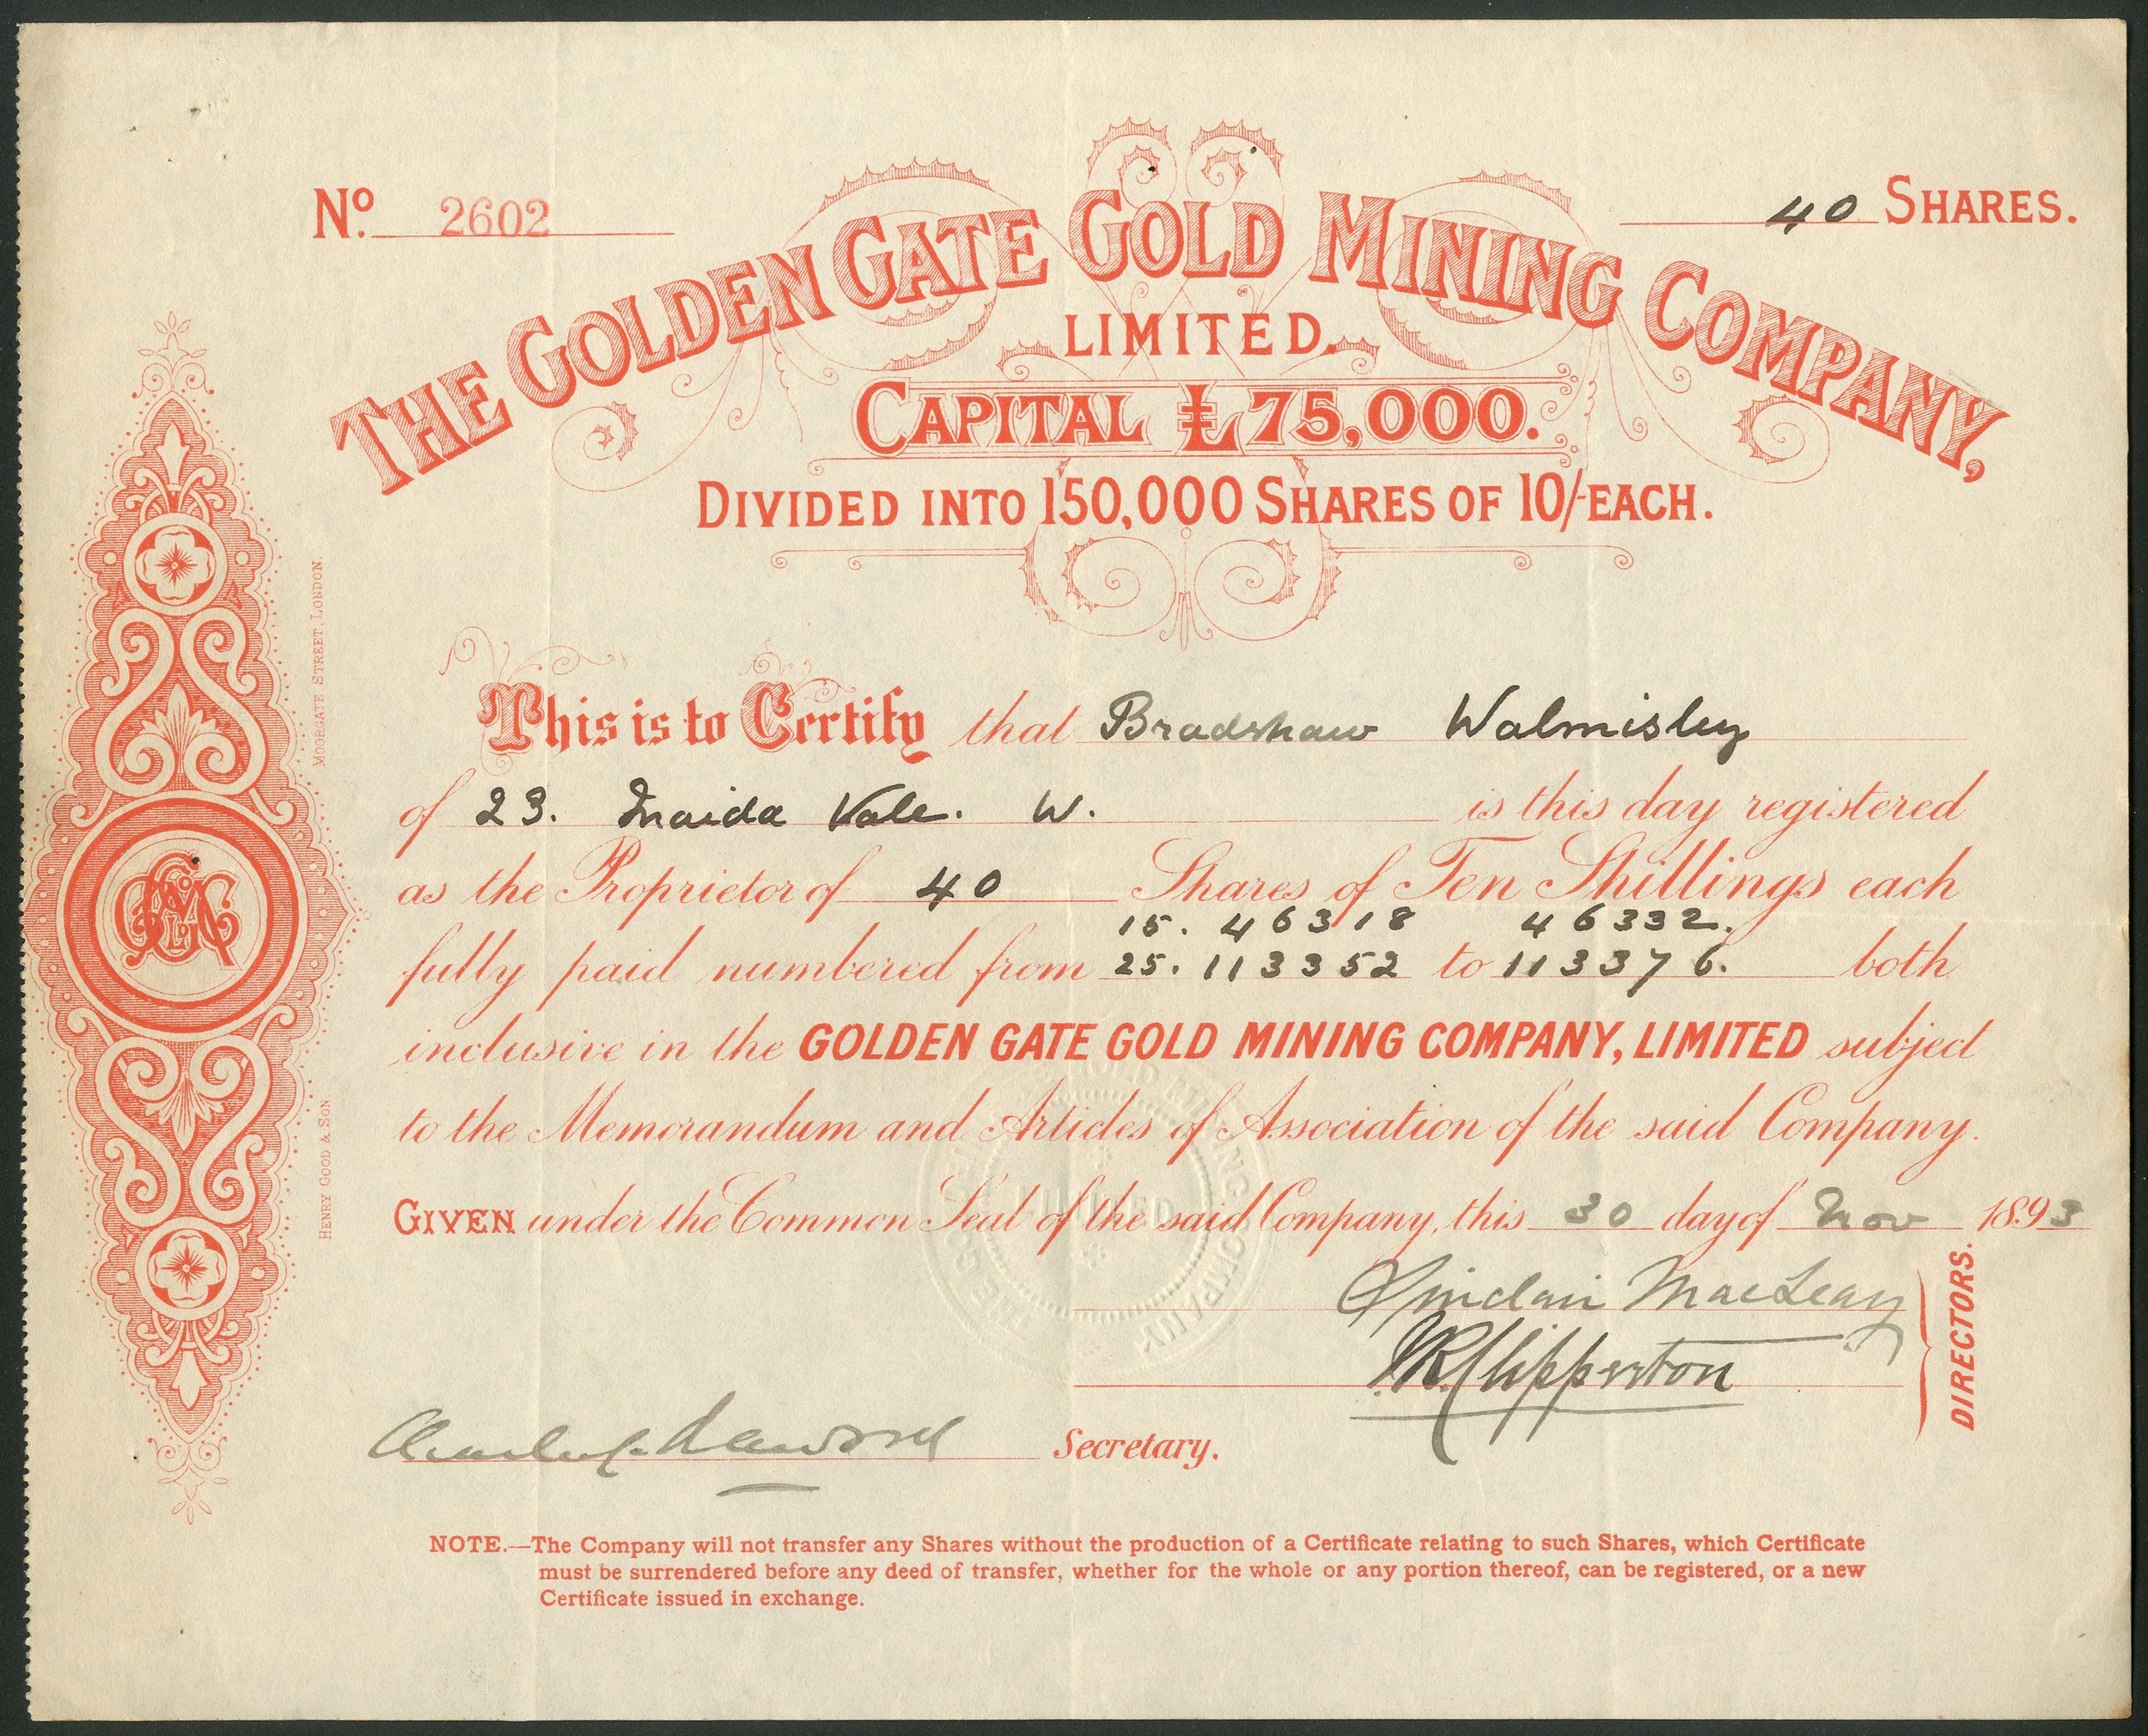 No. 2602
40 SHARES.
THE GOLDEN GATE GOLD MINING COMPANY,
LIMITED.
CAPITAL £75,000.
DIVIDED INTO 150,000 SHARES OF 10/- EACH.
This is to Certify that Bradshaw Walmisley
of 23. Maida Vale. W. is this day registered
as the Proprietor of 40 Shares of Ten Shillings each
15. 46318 46332.
fully paid numbered from 25. 113352 to 113376. both
inclusive in the GOLDEN GATE GOLD MINING COMPANY, LIMITED subject
to the Memorandum and Articles of Association of the said Company.
GIVEN under the Common Seal of the said Company, this 30 day of Nov 1893
Sinclair MacLeay
Clipperton
DIRECTORS.
Secretary.
NOTE.—The Company will not transfer any Shares without the production of a Certificate relating to such Shares, which Certificate
must be surrendered before any deed of transfer, whether for the whole or any portion thereof, can be registered, or a new
Certificate issued in exchange.
HENRY GOOD & SON MOORGATE STREET, LONDON.
THE GOLDEN GATE GOLD MINING COMPANY
LIMITED